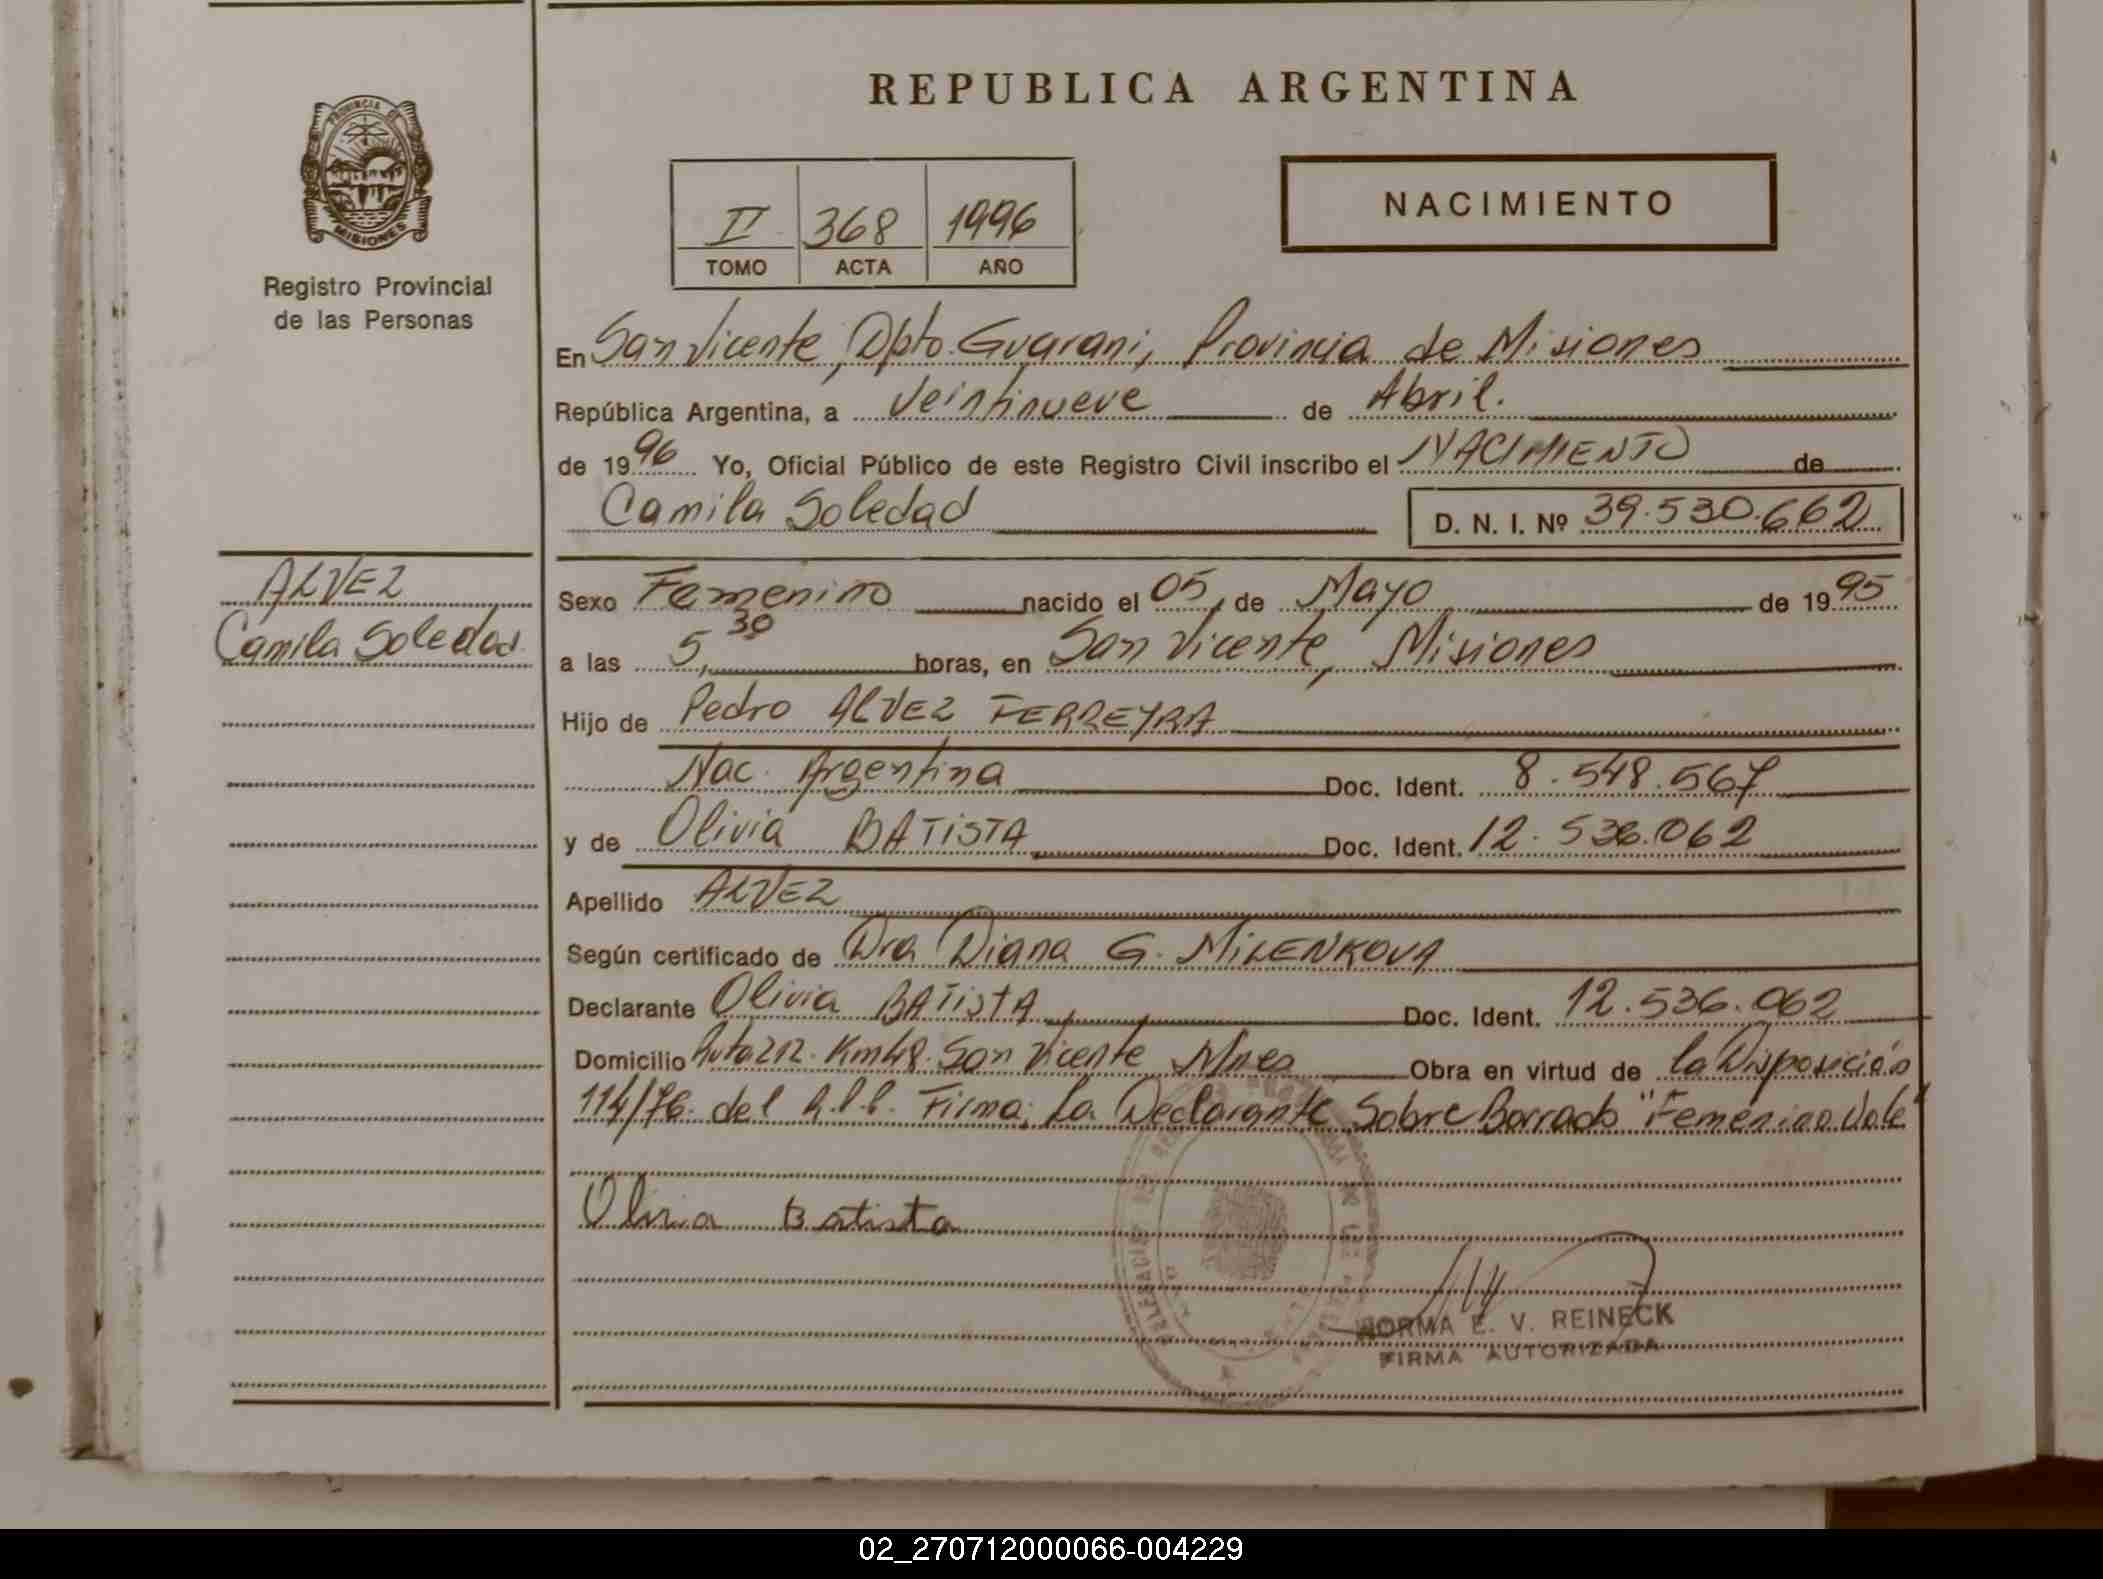 REPUBLICA ARGENTINA
PROVINCIA DE
MISIONES
Registro Provincial
de las Personas
II 368 1996
TOMO ACTA AÑO
NACIMIENTO
En San Vicente, Dpto. Guarani, Provincia de Misiones
República Argentina, a Veintinueve de Abril.
de 1996 Yo, Oficial Público de este Registro Civil inscribo el NACIMIENTO de
Camila Soledad D. N. I. Nº 39.530.662
ALVEZ
Camila Soledad
Sexo Femenino nacido el 05, de Mayo de 1995
a las 5,30 horas, en San Vicente, Misiones
Hijo de Pedro ALVEZ FERREYRA
Nac. Argentina Doc. Ident. 8.548.567
y de Olivia BATISTA Doc. Ident. 12.536.062
Apellido ALVEZ
Según certificado de Dra Diana G. MILENKOVA
Declarante Olivia BATISTA Doc. Ident. 12.536.062
Domicilio Ruta 212. Km 48. San Vicente Mnes Obra en virtud de la Disposición
114/76. del Firma: La Declarante Sobre Borrado "Femenino Vale"
Olivia Batista
NORMA E. V. REINECK
FIRMA AUTORIZADA
02_270712000066-004229